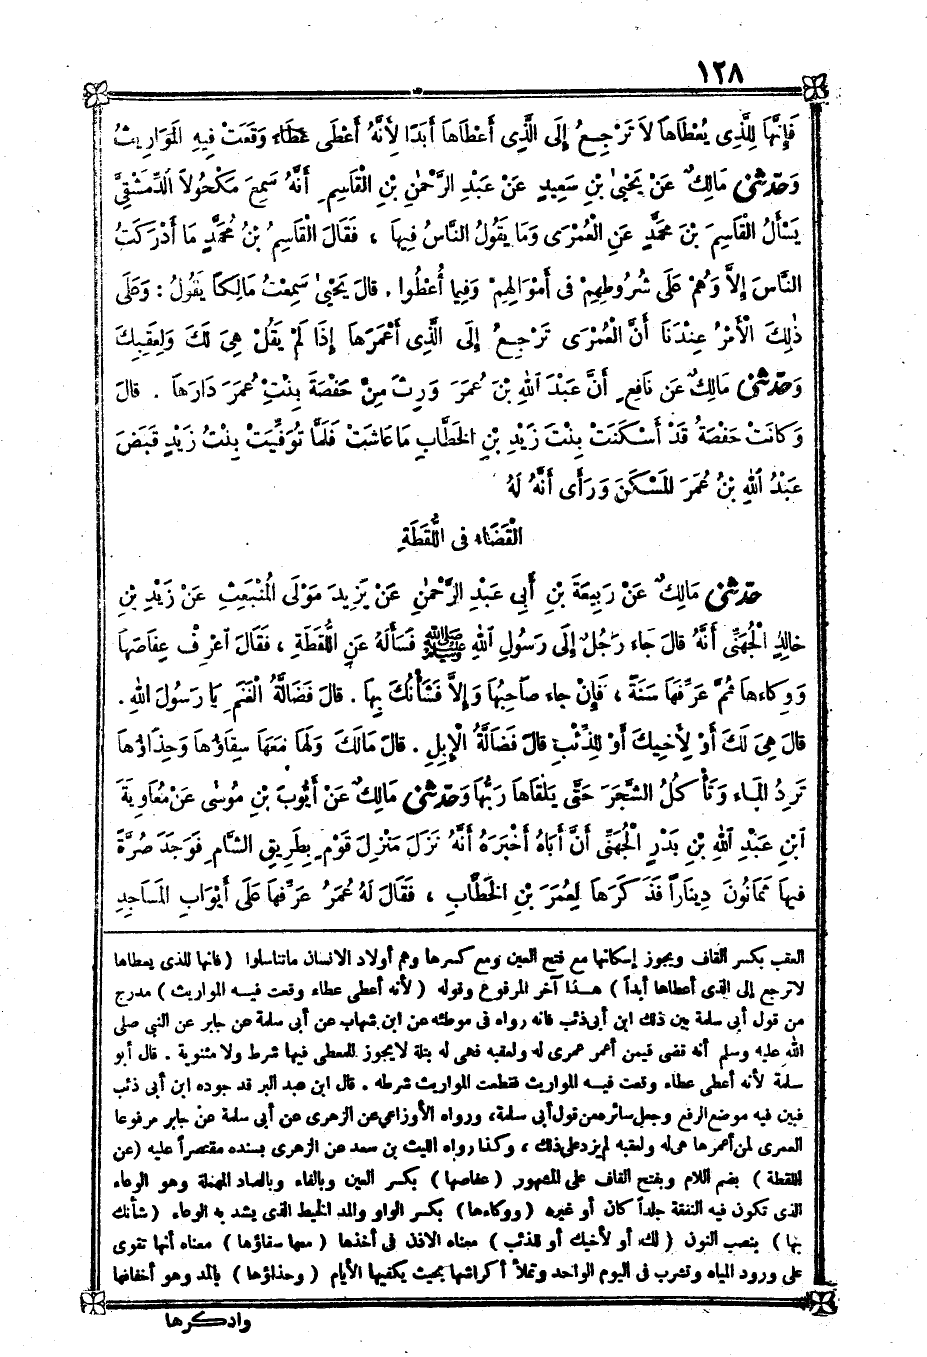 ١٢٨
فَإِنَّهَا لِلَّذِى يُعْطَاهَا لاَ تَرْجِعُ إِلَى الَّذِى أَعْطَاهَا أَبَدًا لِأَنَّهُ أَعْطَى عَطَاءً وَقَعَتْ فِيهِ الْمَوَارِيثُ
وَحَدَّثَنِى مَالِكٌ عَنْ يَحْيَىٰ بْنِ سَعِيدٍ عَنْ عَبْدِ الرَّحْمٰنِ بْنِ الْقَاسِمِ أَنَّهُ سَمِعَ مَكْحُولاً الدِّمَشْقِىَّ
يَسْأَلُ الْقَاسِمَ بْنَ مُحَمَّدٍ عَنِ الْعُمْرَى وَمَا يَقُولُ النَّاسُ فِيهَا ، فَقَالَ الْقَاسِمُ بْنُ مُحَمَّدٍ مَا أَدْرَكْتُ
النَّاسَ إِلاَّ وَهُمْ عَلَى شُرُوطِهِمْ فِى أَمْوَالِهِمْ وَفِيمَا أُعْطُوا . قَالَ يَحْيَىٰ سَمِعْتُ مَالِكًا يَقُولُ : وَعَلَى
ذٰلِكَ الْأَمْرُ عِنْدَنَا أَنَّ الْعُمْرَى تَرْجِعُ إِلَى الَّذِى أَعْمَرَهَا إِذَا لَمْ يَقُلْ هِىَ لَكَ وَلِعَقِبِكَ
وَحَدَّثَنِى مَالِكٌ عَن نَافِعٍ أَنَّ عَبْدَ اللهِ بْنَ عُمَرَ وَرِثَ مِنْ حَفْصَةَ بِنْتِ عُمَرَ دَارَهَا . قَالَ
وَكَانَتْ حَفْصَةُ قَدْ أَسْكَنَتْ بِنْتَ زَيْدِ بْنِ الْخَطَّابِ مَا عَاشَتْ فَلَمَّا تُوُفِّيَتْ بِنْتُ زَيْدٍ قَبَضَ
عَبْدُ اللهِ بْنُ عُمَرَ الْمَسْكَنَ وَرَأَى أَنَّهُ لَهُ
الْقَضَاءُ فِى اللُّقَطَةِ
حَدَّثَنِى مَالِكٌ عَنْ رَبِيعَةَ بْنِ أَبِى عَبْدِ الرَّحْمٰنِ عَنْ يَزِيدَ مَوْلَى الْمُنْبَعِثِ عَنْ زَيْدِ بْنِ
خَالِدٍ الْجُهَنِىِّ أَنَّهُ قَالَ جَاءَ رَجُلٌ إِلَى رَسُولِ اللهِ ﷺ فَسَأَلَهُ عَنِ اللُّقَطَةِ ، فَقَالَ اعْرِفْ عِفَاصَهَا
وَوِكَاءَهَا ثُمَّ عَرِّفْهَا سَنَةً ، فَإِنْ جَاءَ صَاحِبُهَا وَإِلاَّ فَشَأْنُكَ بِهَا . قَالَ فَضَالَّةُ الْغَنَمِ يَا رَسُولَ اللهِ .
قَالَ هِىَ لَكَ أَوْ لِأَخِيكَ أَوْ لِلذِّئْبِ قَالَ فَضَالَّةُ الْإِبِلِ . قَالَ مَالَكَ وَلَهَا مَعَهَا سِقَاؤُهَا وَحِذَاؤُهَا
تَرِدُ الْمَاءَ وَتَأْكُلُ الشَّجَرَ حَتَّى يَلْقَاهَا رَبُّهَا وَحَدَّثَنِى مَالِكٌ عَنْ أَيُّوبَ بْنِ مُوسَى عَنْ مُعَاوِيَةَ
ابْنِ عَبْدِ اللهِ بْنِ بَدْرٍ الْجُهَنِىِّ أَنَّ أَبَاهُ أَخْبَرَهُ أَنَّهُ نَزَلَ مَنْزِلَ قَوْمٍ بِطَرِيقِ الشَّامِ فَوَجَدَ صُرَّةً
فِيهَا ثَمَانُونَ دِينَاراً فَذَكَرَهَا لِعُمَرَ بْنِ الْخَطَّابِ ، فَقَالَ لَهُ عُمَرُ عَرِّفْهَا عَلَى أَبْوَابِ الْمَسَاجِدِ
العقب بكسر القاف ويجوز إسكانها مع فتح العين ومع كسرها وهم أولاد الانسان ماتناسلوا (فانها للذى يعطاها
لاترجع إلى الذى أعطاها أبداً) هـذا آخر المرفوع وقوله (لأنه أعطى عطاء وقعت فيـه المواريث) مدرج
من قول أبى سلمة بين ذلك ابن أبى ذئب فانه رواه فى موطئه عن ابن شهاب عن أبى سلمة عن جابر عن النبى صلى
الله عليه وسلم أنه قضى فيمن أعمر عمرى له ولعقبه فهى له بتلة لايجوز للمعطى فيها شرط ولا مثنوية . قال أبو
سلمة لأنه أعطى عطاء وقعت فيـه المواريث فقطعت المواريث شرطه . قال ابن عبد البر قد جوده ابن أبى ذئب
فبين فيه موضع الرفع وجعل سائره من قول أبى سلمة، ورواه الأوزاعى عن الزهرى عن أبى سلمة عن جابر مرفوعا
العمرى لمن أعمرها هى له ولعقبه لم يزد على ذلك ، وكذا رواه الليث بن سعد عن الزهرى بسنده مقتصراً عليه (عن
اللقطة) بضم اللام وبفتح القاف على المشهور (عفاصها) بكسر العين وبالفاء وبالصاد المهملة وهو الوعاء
الذى تكون فيه النفقة جلداً كان أو غيره (ووكاءها) بكسر الواو والمد الخيط الذى يشد به الوعاء (شأنك
بها) بنصب النون (لك أو لأخيك أو للذئب) معناه الاذن فى أخذها (معها سقاؤها) معناه أنها تقوى
على ورود المياه وتشرب فى اليوم الواحد وتملأ أكراشها بحيث يكفيها الأيام (وحذاؤها) بالمد وهو أخفافها
واذكرها